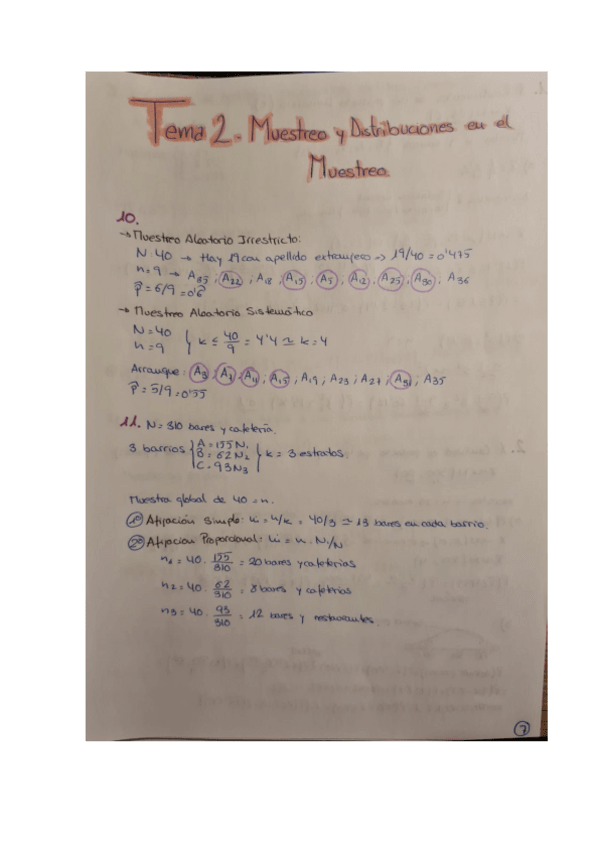 Tema 2.- Muestreo y Distribuciones en el
Muestreo.
10.
→ Muestreo Aleatorio Irrestricto:
N: 40 → Hay 19 con apellido extranjero => 19/40 = 0'475
n = 9 → A35 ; A22 ; A18 ; A15 ; A5 ; A12 ; A25 ; A30 ; A36
p̂ = 6/9 = 0'6
→ Muestreo Aleatorio Sistemático
N = 40
n = 9 } k ≤ 40/9 = 4'4 ≃ k = 4
Arranque: A3 ; A7 ; A11 ; A15 ; A19 ; A23 ; A27 ; A31 ; A35
p̂ = 5/9 = 0'55
11. N = 310 bares y cafetería.
3 barrios { A = 155 N1
B = 62 N2
C = 93 N3 } k = 3 estratos.
Muestra global de 40 = n.
1º Afijación Simple: ni = n/k = 40/3 ≃ 13 bares en cada barrio.
2º Afijación Proporcional: ni = n . Ni/N
n1 = 40 . 155/310 = 20 bares y cafeterías
n2 = 40 . 62/310 = 8 bares y cafeterías
n3 = 40 . 93/310 = 12 bares y restaurantes.
7